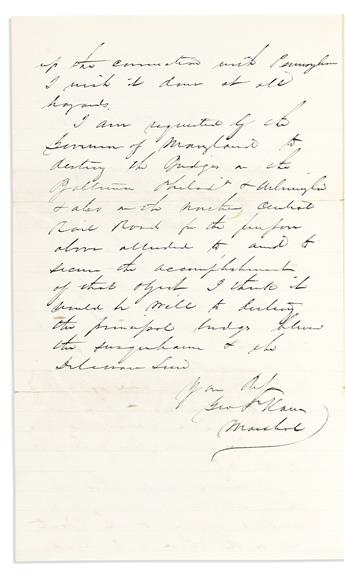 up the connection with Pennsylvania
I wish it done at all
hazards.
I am requested by the
Governor of Maryland to
destroy the bridges on the
Baltimore Philad & Wilmington
& also on the North Central
Rail Road for the purpose
above alluded to and to
secure the accomplishment
of that object I think it
would be well to destroy
the principal bridges between
the Susquehanna & the
Delaware Line
Your
Geo P Kane
Marshal